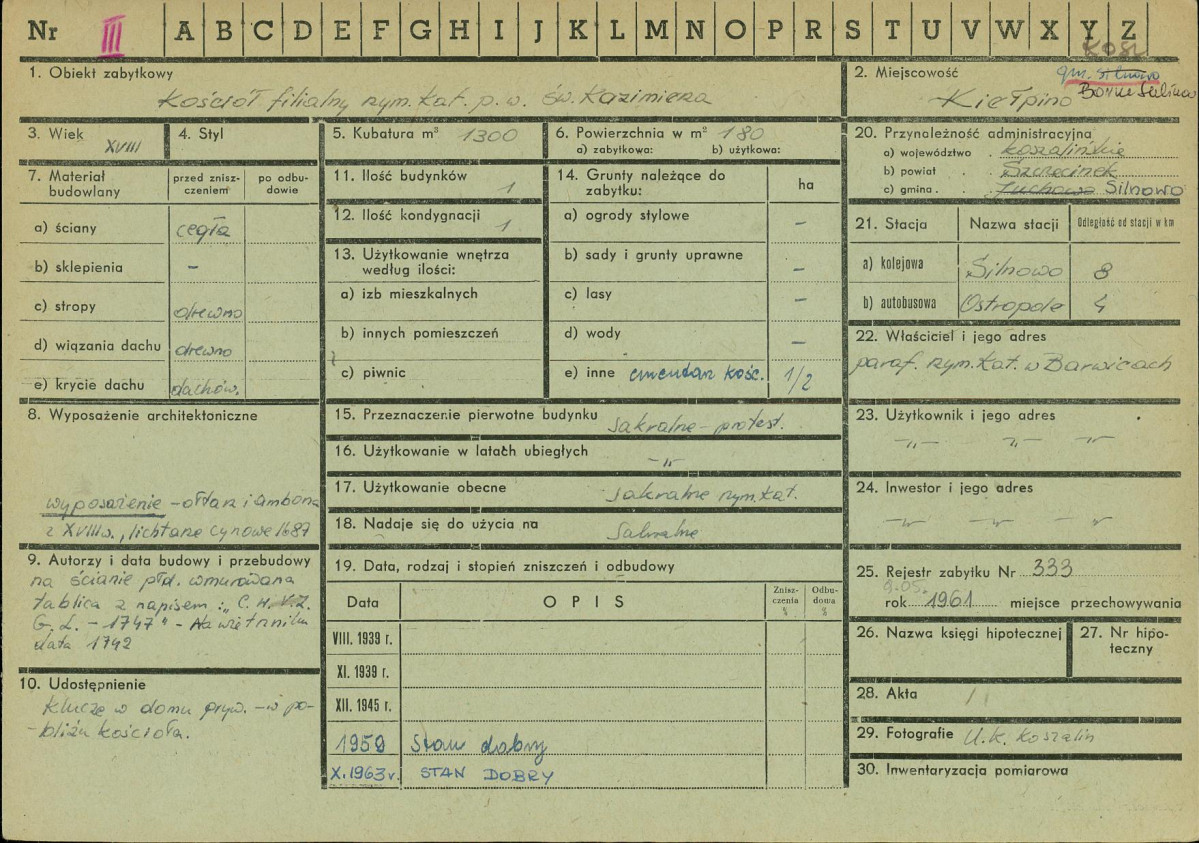 Nr III A B C D E F G H I J K L M N O P R S T U V W X Y Z
KOSZ.
1. Obiekt zabytkowy
Kościół filialny rzym. kat. p. w. św. Kazimierza
2. Miejscowość
gm. Silnowo
Borne Sulinowo
Kiełpino
3. Wiek
XVIII
4. Styl
5. Kubatura m³ 1300
6. Powierzchnia w m² 180
a) zabytkowa: b) użytkowa:
7. Materiał budowlany
przed znisz-
czeniem
po odbu-
dowie
a) ściany cegła
b) sklepienia –
c) stropy drewno
d) wiązania dachu drewno
e) krycie dachu dachów.
8. Wyposażenie architektoniczne
wyposażenie – ołtarz i ambona
z XVIII w., lichtarze cynowe 1687
9. Autorzy i data budowy i przebudowy
na ścianie płd. wmurowana
tablica z napisem: „C. H. V. Z.
G. L. – 1747" – Na wietrzniku
data 1742
10. Udostępnienie
Klucze w domu pryw. – w po-
-bliżu kościoła.
11. Ilość budynków 1
12. Ilość kondygnacji 1
13. Użytkowanie wnętrza
według ilości:
a) izb mieszkalnych
b) innych pomieszczeń
c) piwnic
14. Grunty należące do
zabytku:
ha
a) ogrody stylowe –
b) sady i grunty uprawne –
c) lasy –
d) wody –
e) inne cmentarz kośc. 1/2
15. Przeznaczenie pierwotne budynku sakralne – protest.
16. Użytkowanie w latach ubiegłych –„–
17. Użytkowanie obecne sakralne rzym. kat.
18. Nadaje się do użycia na sakralne
19. Data, rodzaj i stopień zniszczeń i odbudowy
Data OPIS Znisz-
czenia
%
Odbu-
dowa
%
VIII. 1939 r.
XI. 1939 r.
XII. 1945 r.
1959 Stan dobry
X. 1963 r. STAN DOBRY
20. Przynależność administracyjna
a) województwo koszalińskie
b) powiat Szczecinek
c) gmina Łuchowo Silnowo
21. Stacja Nazwa stacji Odległość od stacji w km
a) kolejowa Silnowo 8
b) autobusowa Ostropole 4
22. Właściciel i jego adres
paraf. rzym. kat. w Barwicach
23. Użytkownik i jego adres
–„– –„– –„–
24. Inwestor i jego adres
–„– –„– –„–
25. Rejestr zabytku Nr 333
9.05.
rok 1961 miejsce przechowywania
26. Nazwa księgi hipotecznej
27. Nr hipo-
teczny
28. Akta
29. Fotografie U.K. Koszalin
30. Inwentaryzacja pomiarowa